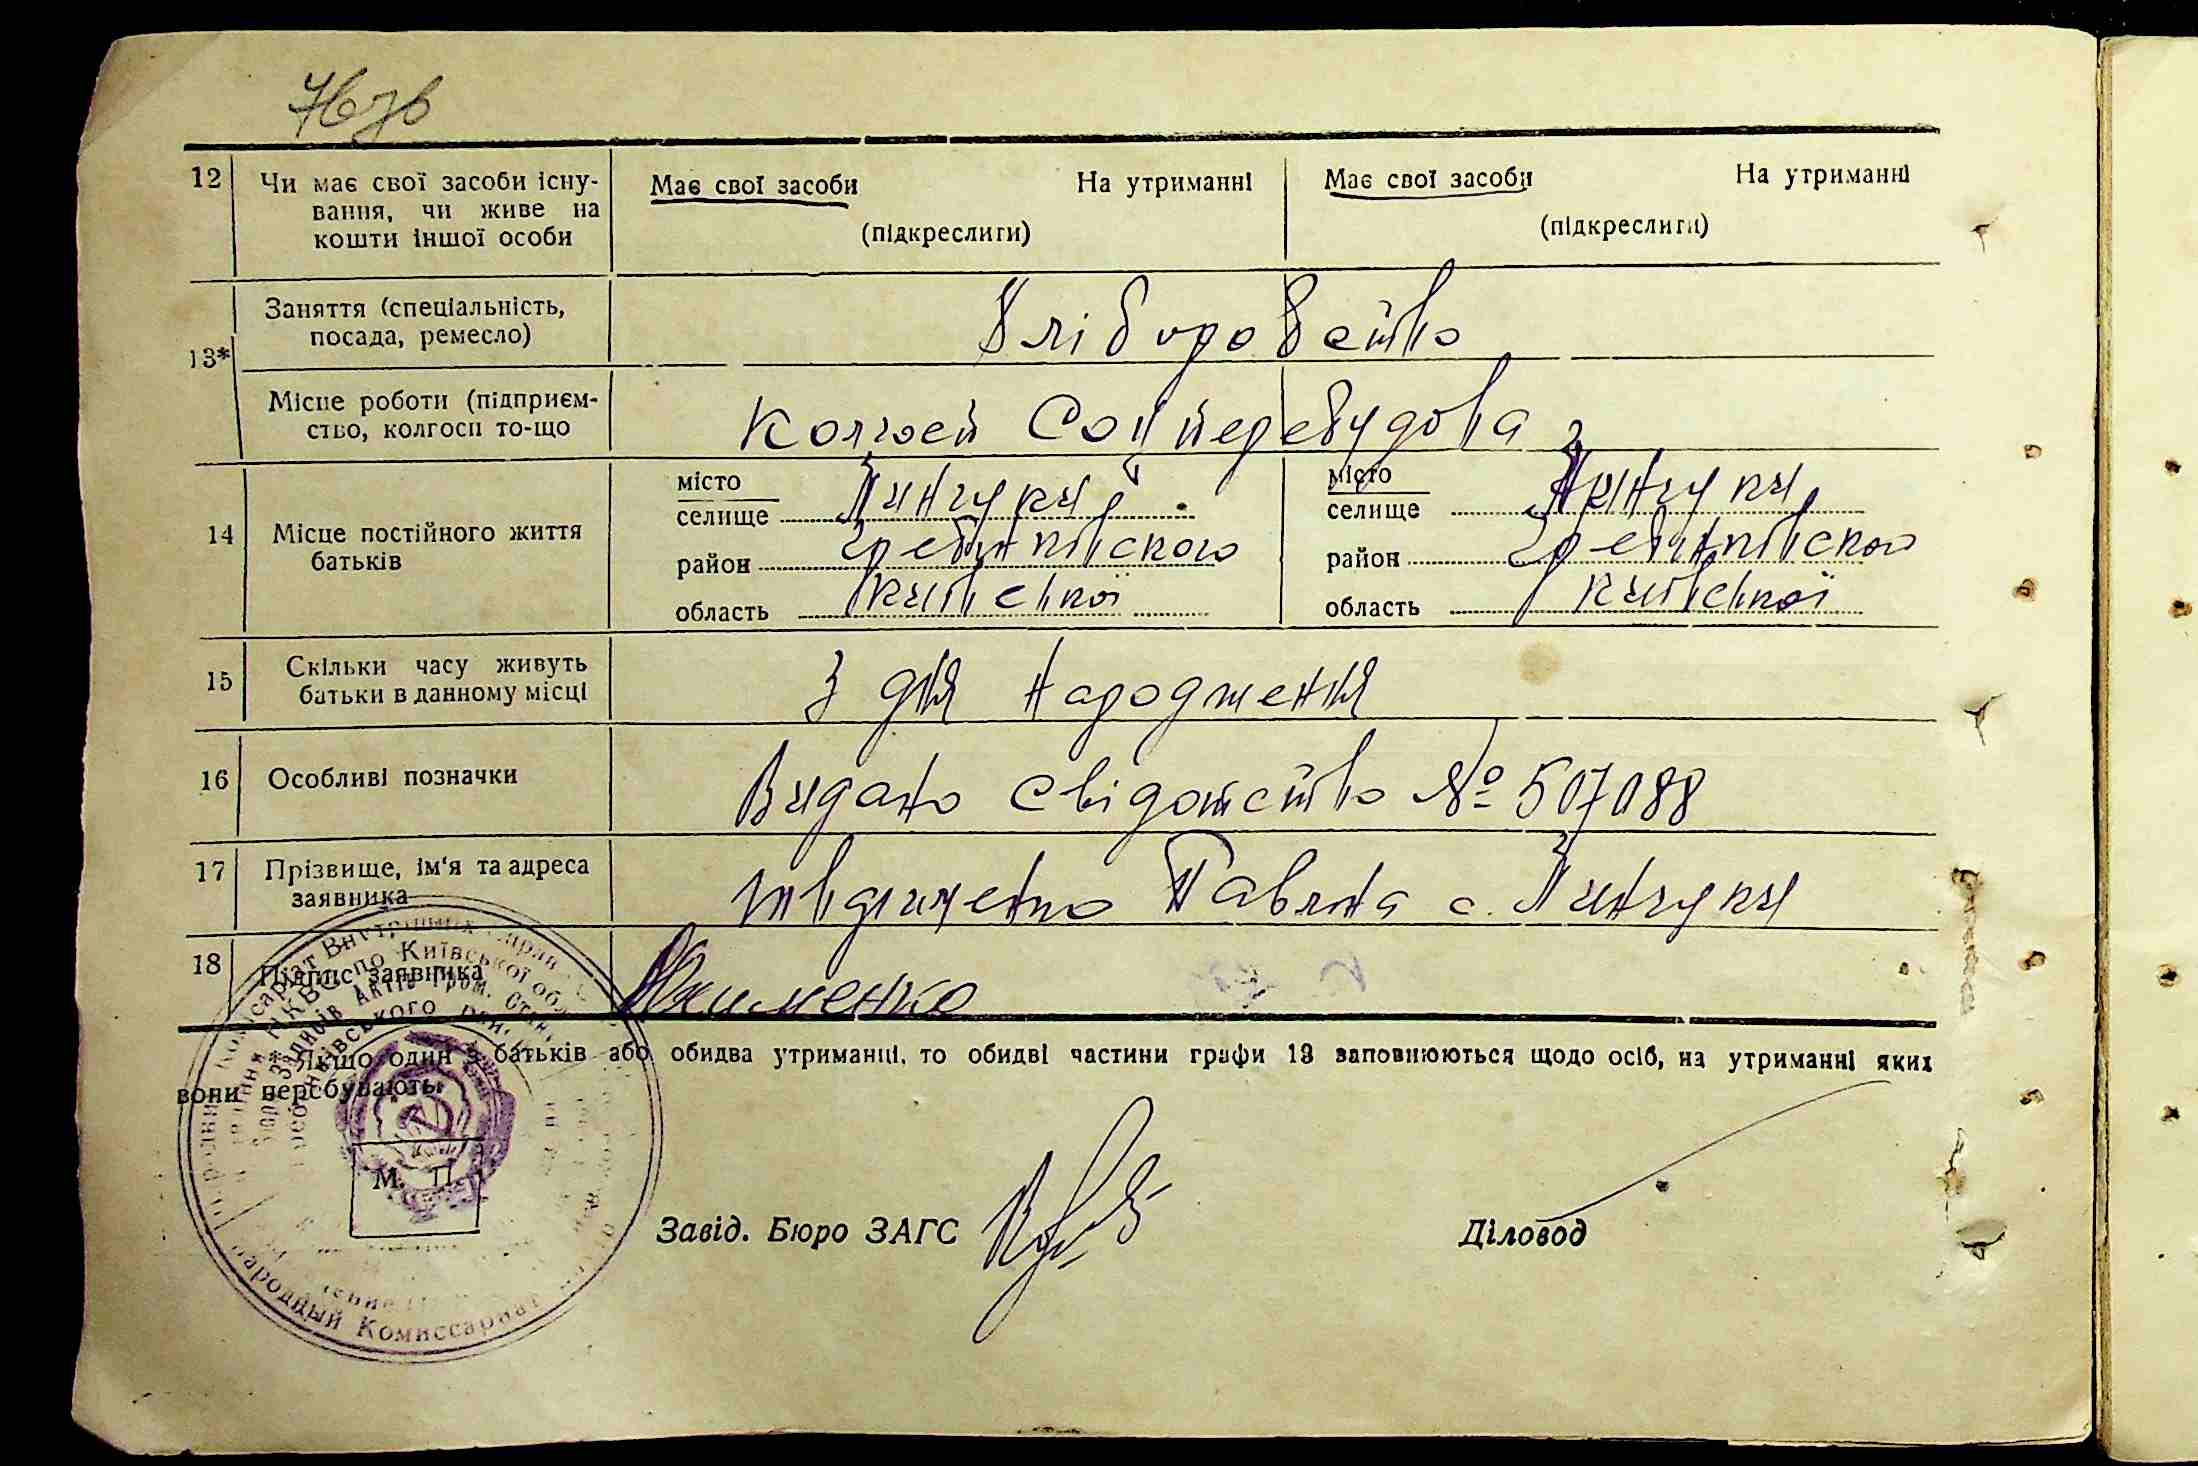 76 зв
12 Чи має свої засоби існу-
вання, чи живе на
кошти іншої особи
Має свої засоби На утриманні
(підкреслити)
Має свої засоби На утриманні
(підкреслити)
13*
Заняття (спеціальність,
посада, ремесло)
Хліборобство
Місце роботи (підприєм-
ство, колгосп то-що
Колгосп Соцперебудова
14 Місце постійного життя
батьків
місто
селище Пинчуки
район Гребінківського
область Київської
місто
селище Пинчуки
район Гребінківского
область Київської
15 Скільки часу живуть
батьки в данному місці
З дня народження
16 Особливі позначки
Видано свідотство № 507088
17 Прізвище, ім'я та адреса
заявника
Павлина с. Пинчуки
18 Підпис заявника
Якименко
* Якщо один з батьків або обидва утриманці, то обидві частини графи 13 заповнюються щодо осіб, на утриманні яких
вони перебувають.
М. П.
Завід. Бюро ЗАГС
Діловод
Народный Комиссариат